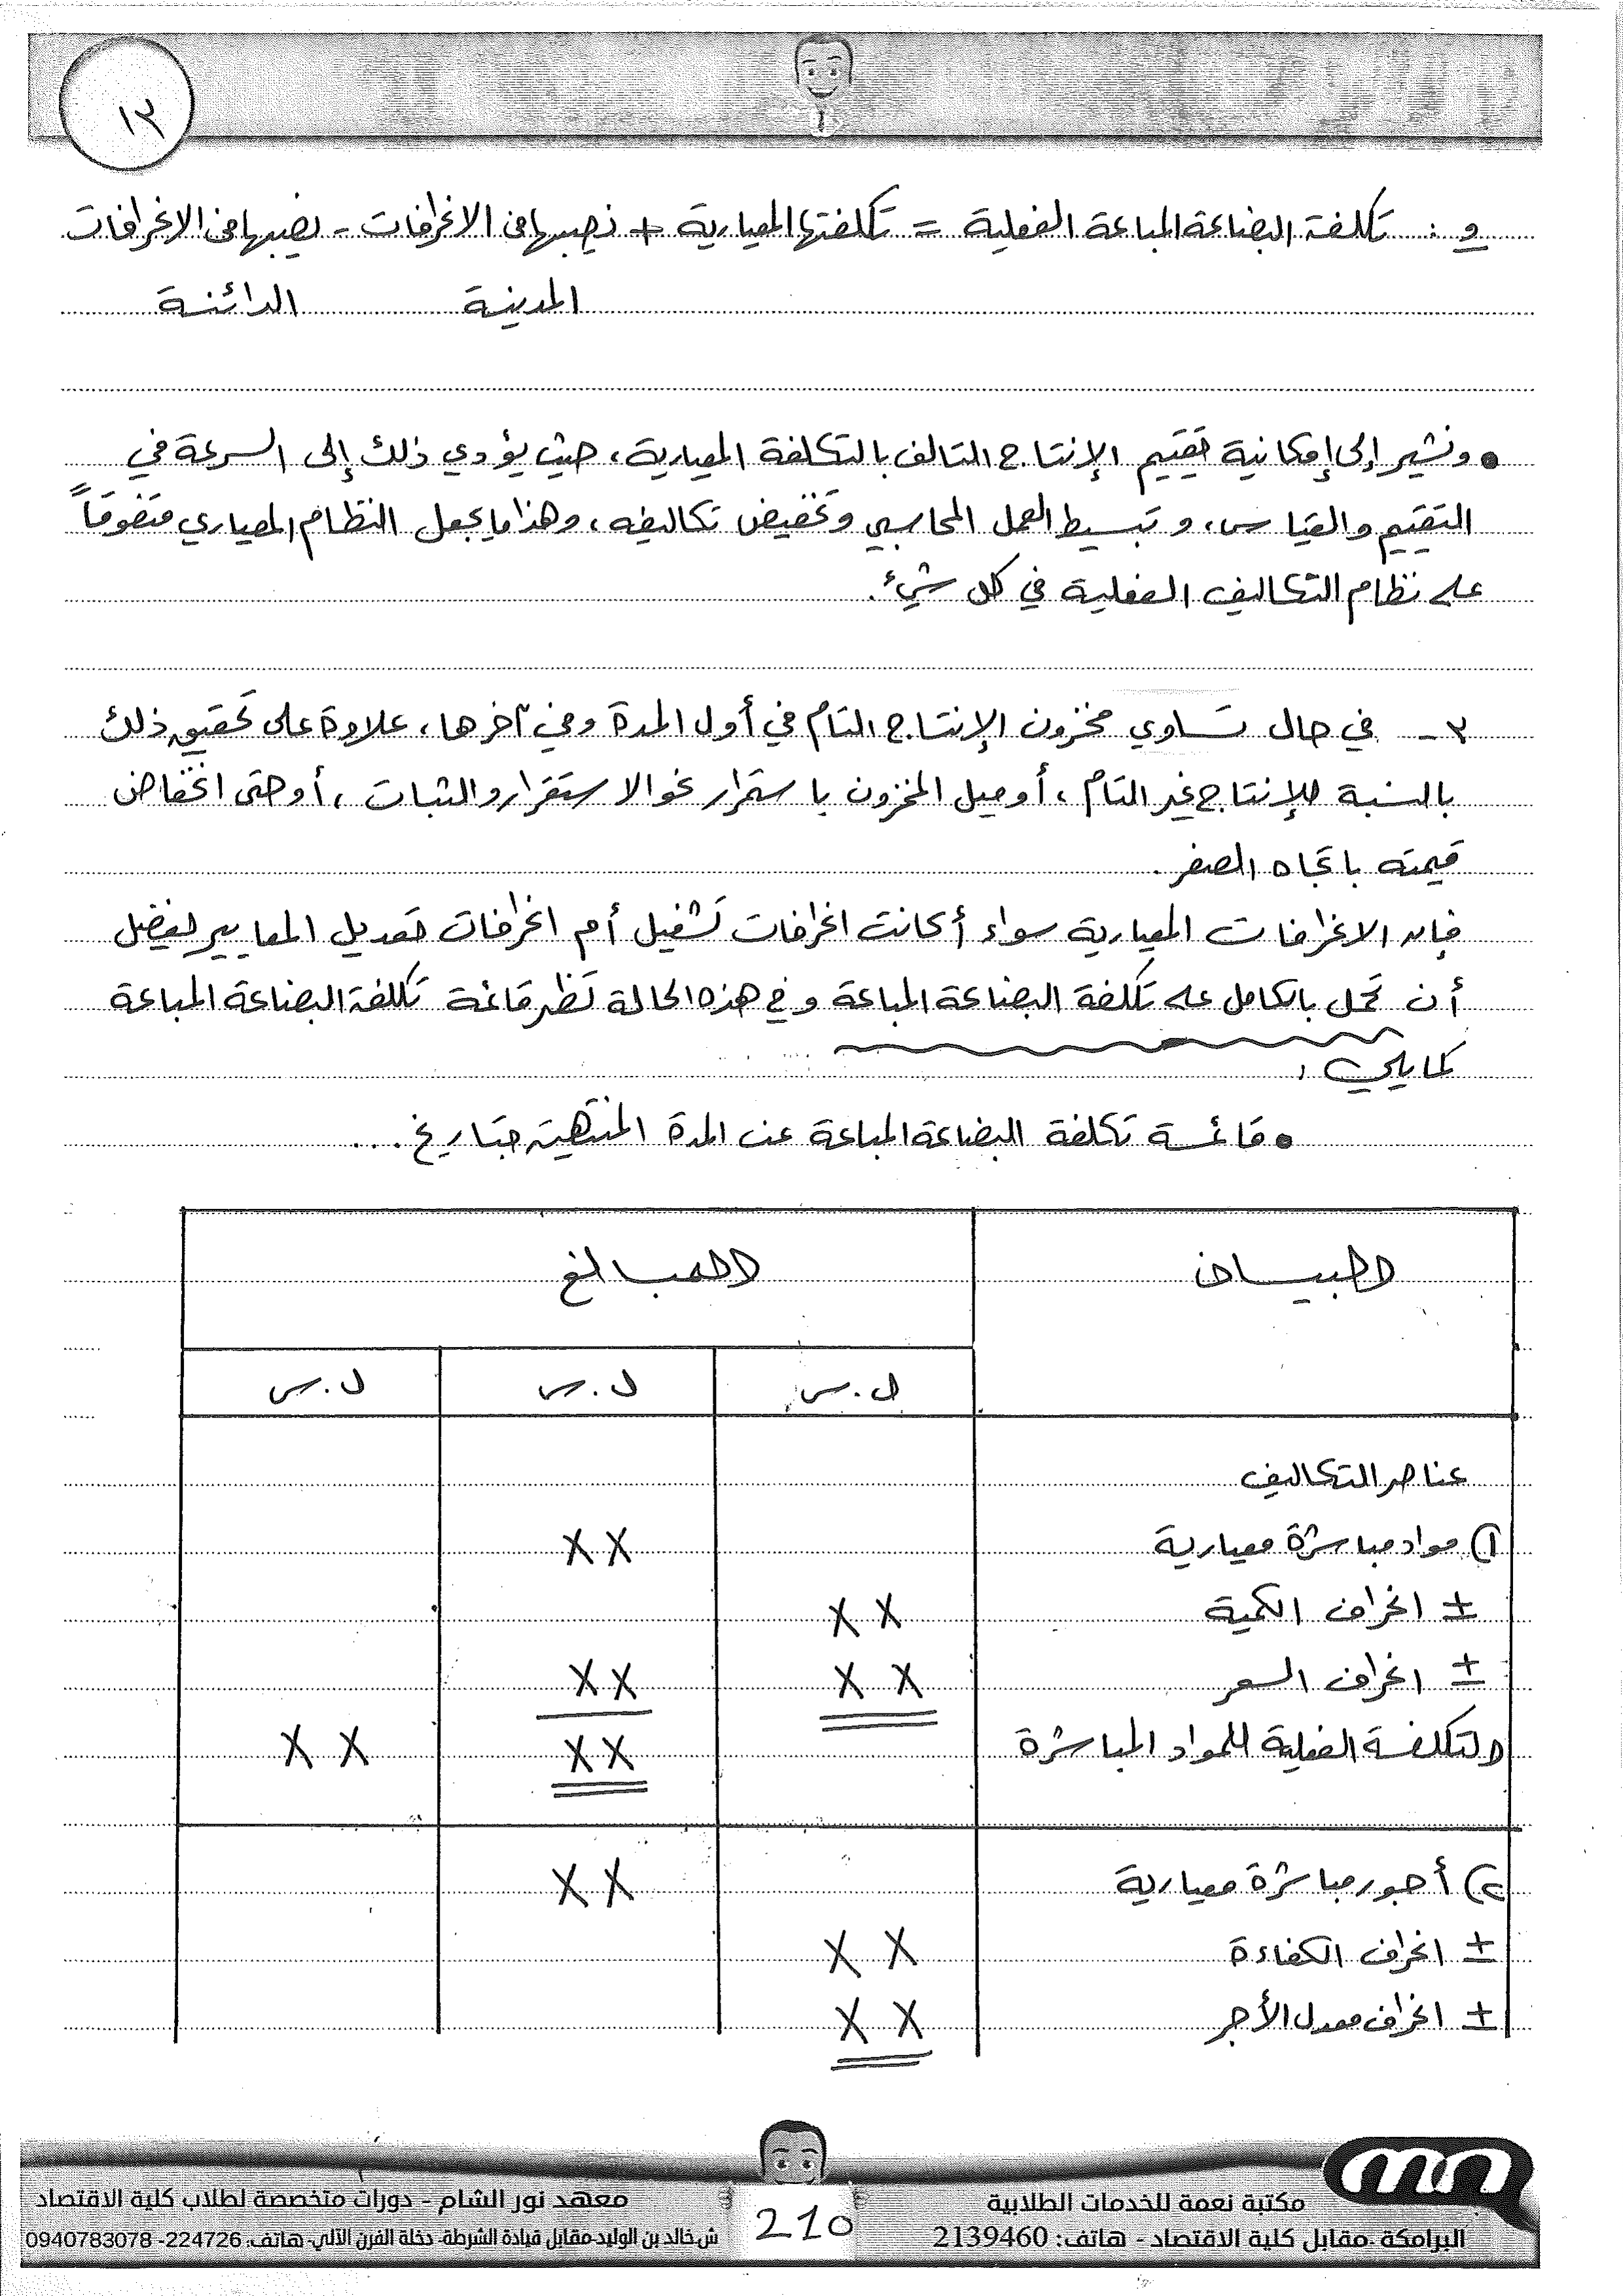 ١٢
و : تكلفة البضاعة المباعة الفعلية = تكلفتها المعيارية + نصيبها من الانحرافات - نصيبها من الانحرافات
المدينة الدائنة
• ونشير إلى إمكانية تقييم الإنتاج التالف بالتكلفة المعيارية، حيث يؤدي ذلك إلى السرعة في
التقييم والقياس، وتبسيط العمل المحاسبي وتخفيض تكاليفه، وهذا ما يجعل النظام المعياري متفوقاً
على نظام التكاليف الفعلية في كل شيء.
٣ - في حال تساوي مخزون الإنتاج التام في أول المدة وفي آخرها، علاوة على تحقيق ذلك
بالنسبة للإنتاج غير التام، أو ميل المخزون باستمرار نحو الاستقرار والثبات، أو حتى انخفاض
قيمته باتجاه الصفر.
فإن الانحرافات المعيارية سواء أكانت انحرافات تشغيل أم انحرافات تعديل المعايير يفضل
أن تحمل بالكامل على تكلفة البضاعة المباعة وفي هذه الحالة تظهر قائمة تكلفة البضاعة المباعة
كما يلي:
• قائمة تكلفة البضاعة المباعة عن المدة المنتهية بتاريخ ...
البيان المبالغ
ل.س ل.س ل.س
عناصر التكاليف
١) مواد مباشرة معيارية XX
± انحراف الكمية XX
± انحراف السعر XX XX
التكلفة الفعلية للمواد المباشرة XX XX
٢) أجور مباشرة معيارية XX
± انحراف الكفاءة XX
± انحراف معدل الأجر XX
مكتبة نعمة للخدمات الطلابية
البرامكة - مقابل كلية الاقتصاد - هاتف: 2139460
210
معهد نور الشام - دورات متخصصة لطلاب كلية الاقتصاد
ش.خالد بن الوليد-مقابل قيادة الشرطة- دخلة الفرن الآلي- هاتف: 224726- 0940783078